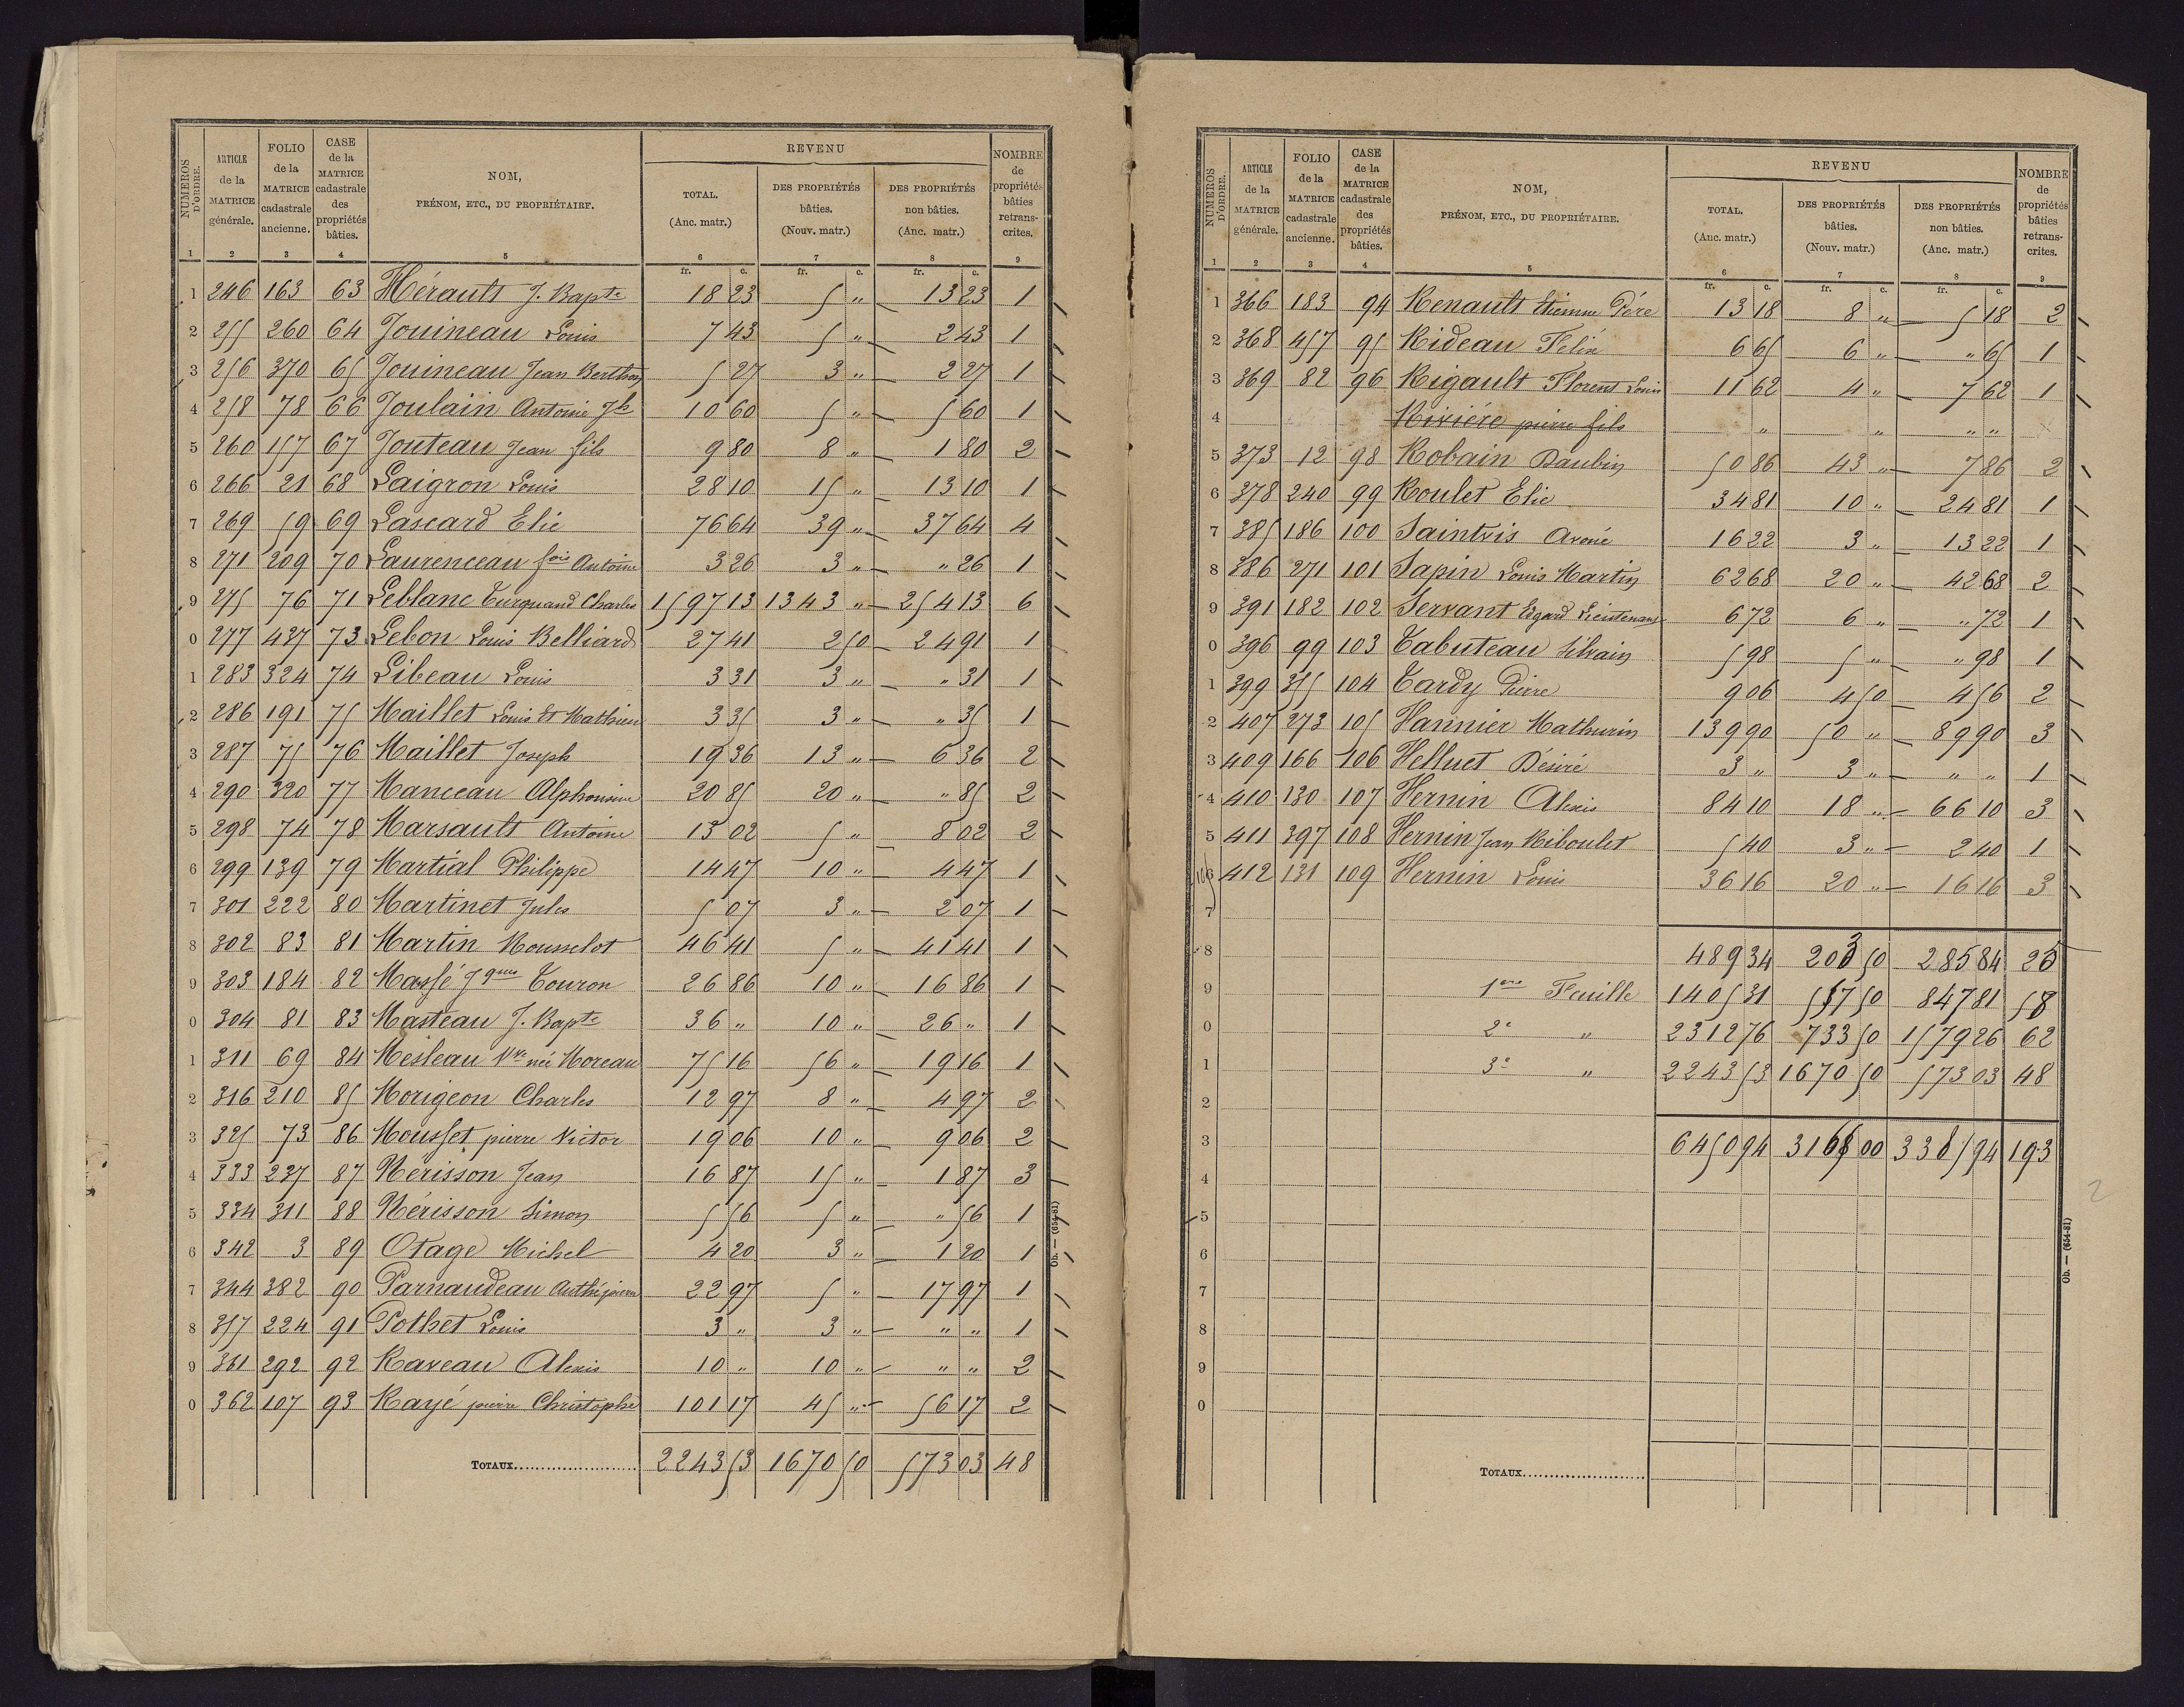 NUMÉROS D'ORDRE. ARTICLE de la MATRICE générale. FOLIO de la MATRICE cadastrale ancienne. CASE de la MATRICE cadastrale des propriétés bâties. NOM, PRÉNOM, ETC., DU PROPRIÉTAIRE. REVENU TOTAL. (Anc. matr.) DES PROPRIÉTÉS bâties. (Nouv. matr.) DES PROPRIÉTÉS non bâties. (Anc. matr.) NOMBRE de propriétés bâties retranscrites.
1 2 3 4 5 6 7 8 9
fr. c. fr. c. fr. c.
1 246 163 63 Hérault J. Bapte 18 23 5 " 13 23 1
2 255 260 64 Jouineau Louis 7 43 5 " 2 43 1
3 256 370 65 Jouineau Jean Berthon 5 27 3 " 2 27 1
4 258 78 66 Joulain Antoine Jh 10 60 5 " 5 60 1
5 260 157 67 Jouteau Jean fils 9 80 8 " 1 80 2
6 266 21 68 Laigron Louis 28 10 15 " 13 10 1
7 269 59 69 Lascard Elie 76 64 39 " 37 64 4
8 271 209 70 Laurenceau fois Antoine 3 26 3 " " 26 1
9 275 76 71 Leblanc Turquand Charles 1597 13 1343 " 254 13 6
0 277 437 73 Lebon Louis Belliard 27 41 2 50 24 91 1
1 283 324 74 Libeau Louis 3 31 3 " " 31 1
2 286 191 75 Maillet Louis Et Mathieu 3 35 3 " " 35 1
3 287 75 76 Maillet Joseph 19 36 13 " 6 36 2
4 290 320 77 Manceau Alphonsine 20 85 20 " " 85 2
5 298 74 78 Marsault Antoine 13 02 5 " 8 02 2
6 299 139 79 Martial Philippe 14 47 10 " 4 47 1
7 301 222 80 Martinet Jules 5 07 3 " 2 07 1
8 302 83 81 Martin Rousselot 46 41 5 " 41 41 1
9 303 184 82 Massé Jques Touron 26 86 10 " 16 86 1
0 304 81 83 Masteau J. Bapte 36 " 10 " 26 " 1
1 311 69 84 Mesleau Vve née Moreau 75 16 56 " 19 16 1
2 316 210 85 Morigeon Charles 12 97 8 " 4 97 2
3 325 73 86 Mousset pierre Victor 19 06 10 " 9 06 2
4 333 237 87 Nérisson Jean 16 87 15 " 1 87 3
5 334 311 88 Nérisson Simon 5 56 5 " " 56 1
6 342 3 89 Otage Michel 4 20 3 " 1 20 1
7 344 382 90 Parnaudeau pierre 22 97 5 " 17 97 1
8 357 224 91 Pothet Louis 3 " 3 " " " 1
9 361 292 92 Raveau Alexis 10 " 10 " " " 2
0 362 107 93 Rayé pierre Christophe 101 17 45 " 56 17 2
TOTAUX 2243 53 1670 50 573 03 48
Ob. — (654-81)
NUMÉROS D'ORDRE. ARTICLE de la MATRICE générale. FOLIO de la MATRICE cadastrale ancienne. CASE de la MATRICE cadastrale des propriétés bâties. NOM, PRÉNOM, ETC., DU PROPRIÉTAIRE. REVENU TOTAL. (Anc. matr.) DES PROPRIÉTÉS bâties. (Nouv. matr.) DES PROPRIÉTÉS non bâties. (Anc. matr.) NOMBRE de propriétés bâties retranscrites.
1 2 3 4 5 6 7 8 9
fr. c. fr. c. fr. c.
1 366 183 94 Renault Etienne Père 13 18 8 " 5 18 2
2 368 457 95 Rideau Félix 6 65 6 " " 65 1
3 369 82 96 Rigault Florent Louis 11 62 4 " 7 62 1
4 Rivière pierre fils " " " "
5 373 12 98 Robain Daubin 50 86 43 " 7 86 2
6 378 240 99 Roulet Elie 34 81 10 " 24 81 1
7 385 186 100 Saintvis 16 22 3 " 13 22 1
8 386 271 101 Sapin Louis Martin 62 68 20 " 42 68 2
9 391 182 102 Servant Edgard Lieutenant 6 72 6 " " 72 1
0 396 99 103 Tabuteau Silvain 5 98 5 " " 98 1
1 399 355 104 Tardy Pierre 9 06 4 50 4 56 2
2 407 273 105 Vannier Mathurin 139 90 50 " 89 90 3
3 409 166 106 Velluet Désiré 3 " 3 " " " 1
4 410 130 107 Vernin Alexis 84 10 18 " 66 10 3
5 411 397 108 Vernin Jean Riboulet 5 40 3 " 2 40 1
6 412 131 109 Vernin Louis 36 16 20 " 16 16 3
7
8 489 34 203 50 285 84 25
9 1ère Feuille 1405 31 557 50 847 81 58
0 2e " 2312 76 733 50 1579 26 62
1 3e " 2243 53 1670 50 573 03 48
2
3 6450 94 3165 00 3285 94 193
4
5
6
7
8
9
0
TOTAUX
Ob. — (654-81)
2